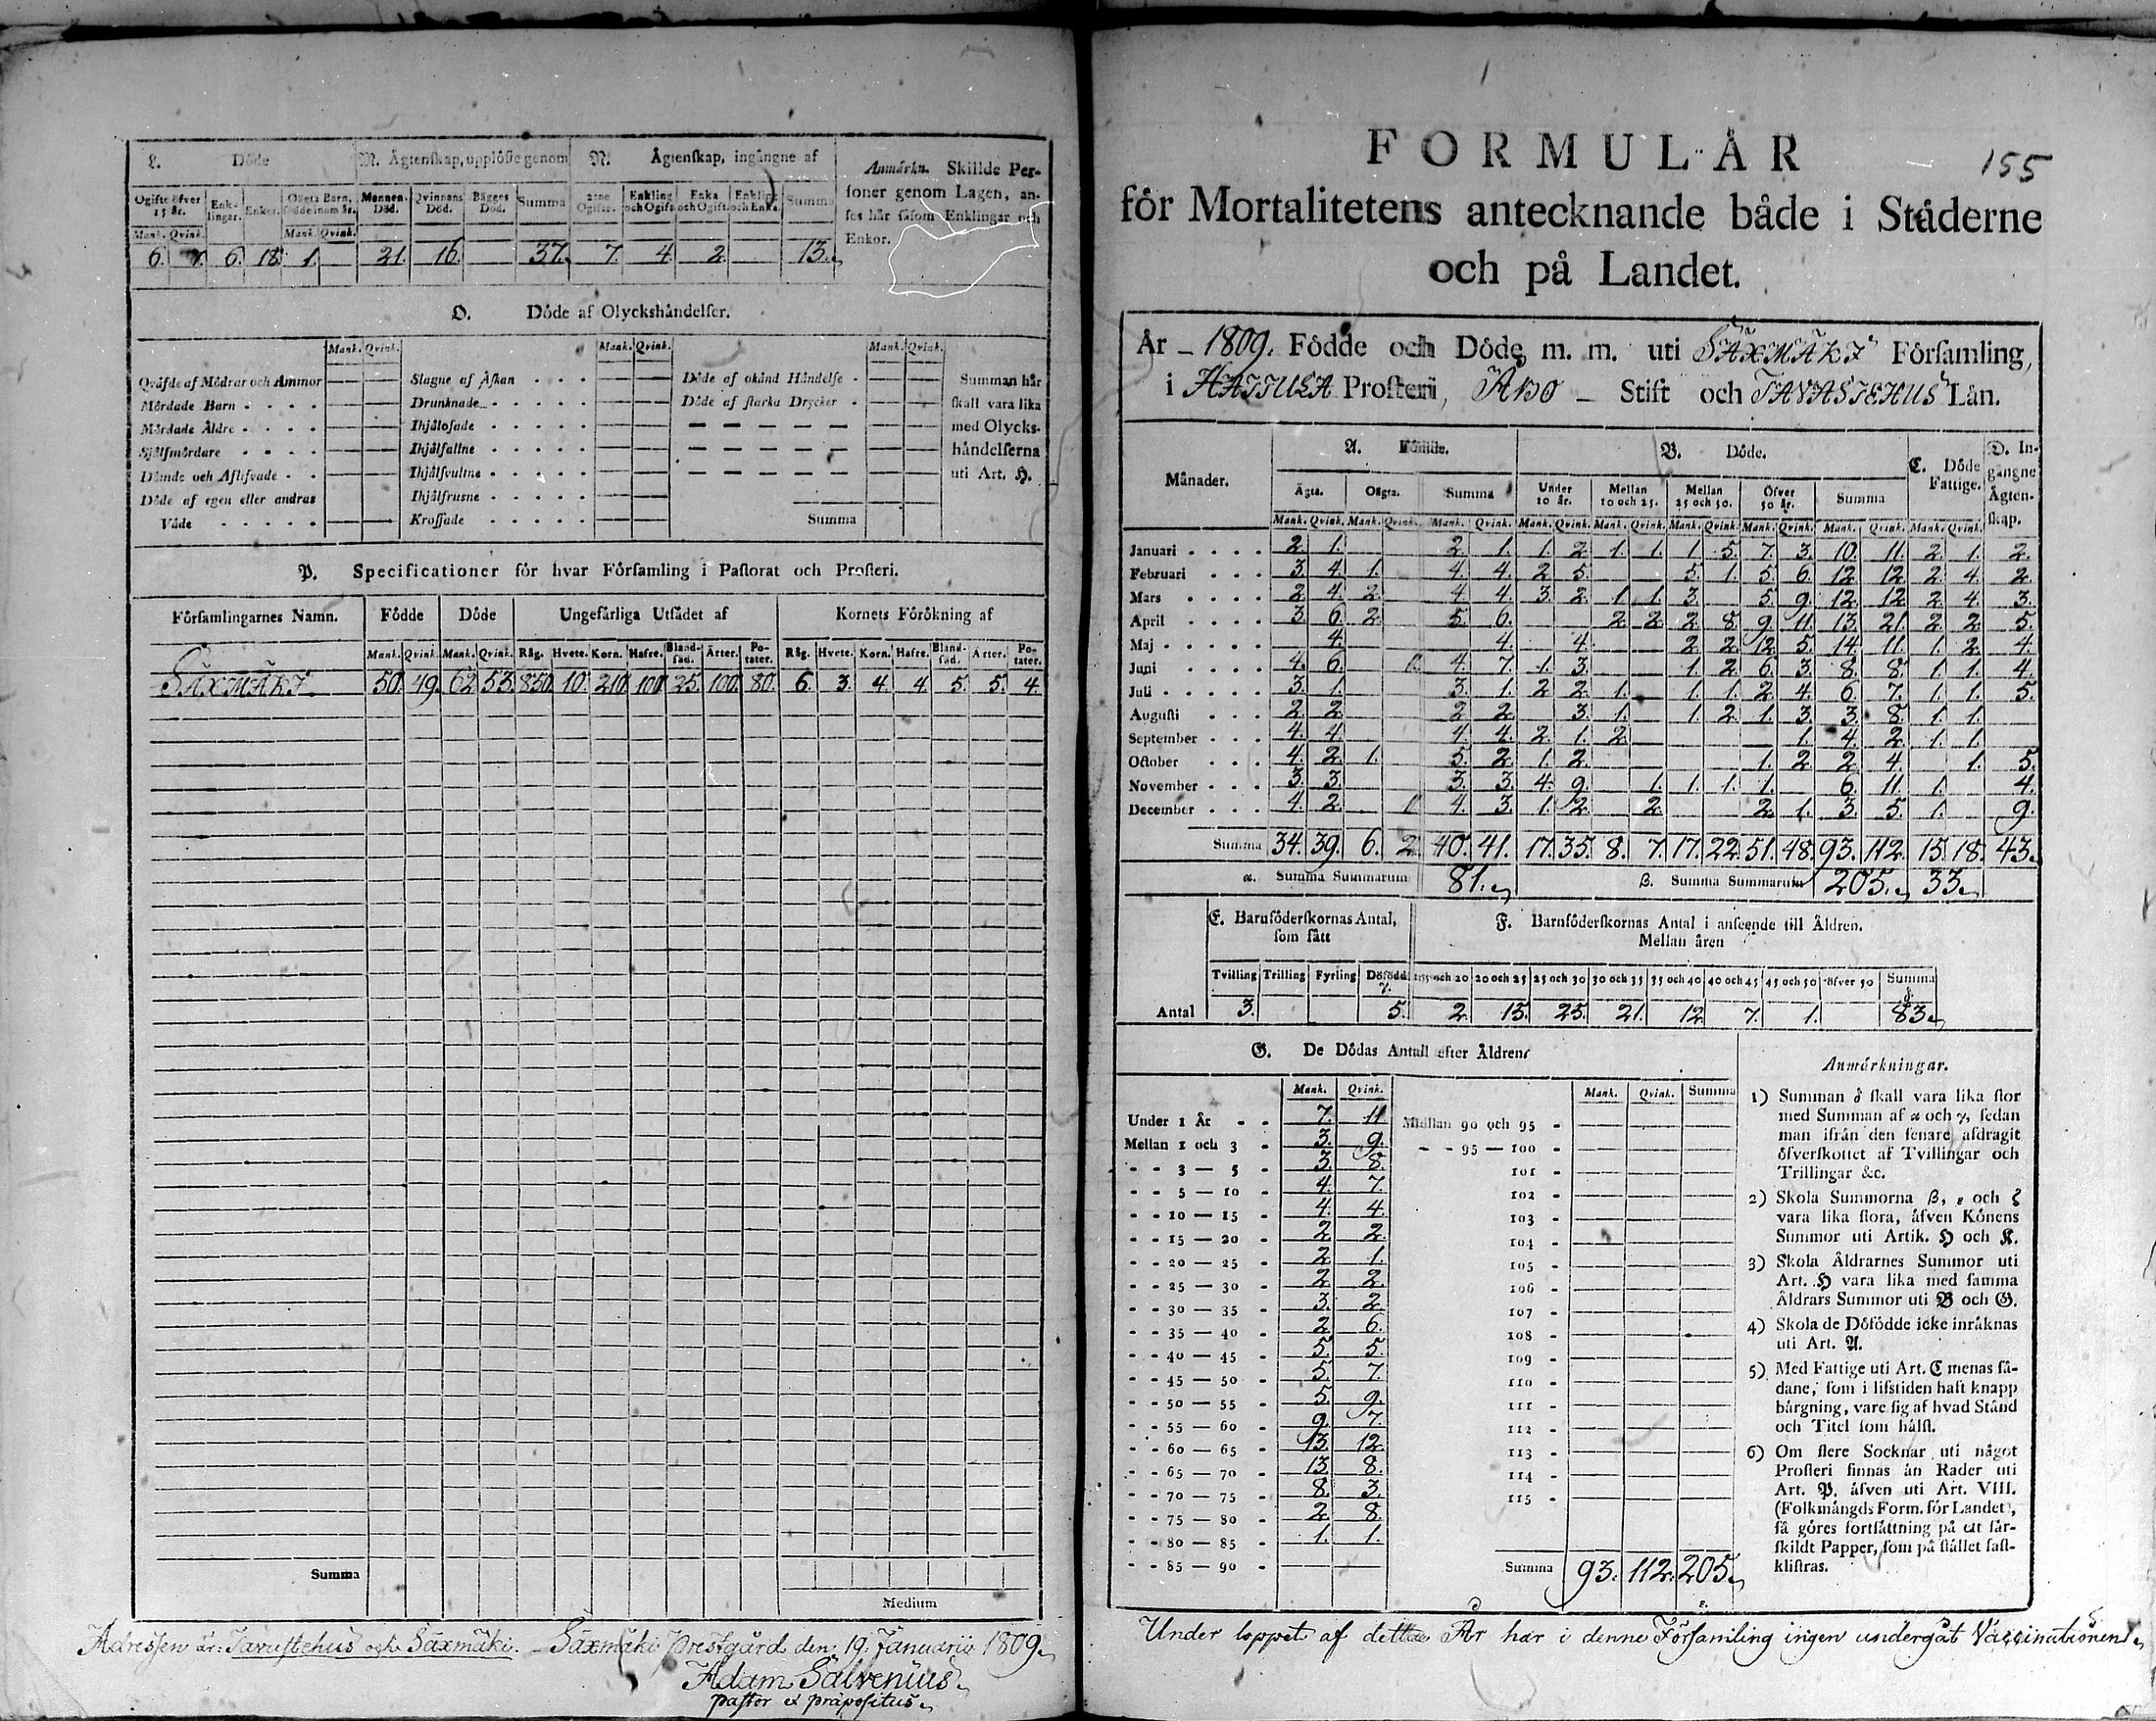 L. Döde
M. Ägtenskap, upplöste genom
N. Ägtenskap, ingångne af
Anmärkn. Skillde Per-
soner genom Lagen, an-
ses här såsom Enklingar och
Enkor.
Ogifte öfver 15 år. Enk-lingar. Enkor. Oägta Barn, födde inom år. Mannens Död. Qvinnans Död. Bägges Död. Summa 2:ne Ogifte. Enkling och Ogift. Enka och Ogift. Enkling och Enka. Summa
Mank. Qvink. Mank. Qvink.
6. 6. 18. 1. 21. 16. 37. 7. 4. 2. 13.
O. Döde af Olyckshändelser.
Mank. Qvink. Mank. Qvink. Mank. Qvink.
Qväfde af Mödrar och Ammor Slagne af Åskan Döde af okänd Händelse Summan här
Mördade Barn Drunknade Döde af starka Drycker skall vara lika
Mördade Äldre Ihjälosade med Olycks-
Sjelfmördare Ihjälfallne händelserna
Dömde och Aflifvade Ihjälsvultne uti Art. H.
Döde af egen eller andras Ihjälfrusne
Våde Krossade Summa
P. Specificationer för hvar Församling i Pastorat och Prosteri.
Församlingarnes Namn. Födde Döde Ungefärliga Utsädet af Kornets Förökning af
Mank. Qvink. Mank. Qvink. Råg. Hvete. Korn. Hafre. Bland-säd. Ärter. Po-tater. Råg. Hvete. Korn. Hafre. Bland-säd. Ärter. Po-tater.
SÄXMÄKI 50. 49. 62. 53. 850. 10. 210. 100. 25. 100. 80. 6. 3. 4. 4. 5. 5. 4.
Summa
Medium
Adressen är: Tavastehus och Säxmäki. Säxmäki prestgård den 19. Januarii 1809.
Adam Salvenius.
pastor et præpositus.
155
FORMULÄR
för Mortalitetens antecknande både i Städerne
och på Landet.
År 1809. Födde och Döde m. m. uti SÄXMÄKI Församling,
i HATTULA Prosteri, ÅBO Stift och TAVASTEHUS Län.
Månader. A. Födde. B. Döde. C. Döde Fattige. D. In-gångne Ägten-skap.
Ägta. Oägta. Summa Under 10 år. Mellan 10 och 25. Mellan 25 och 50. Öfver 50 år. Summa
Mank. Qvink. Mank. Qvink. Mank. Qvink. Mank. Qvink. Mank. Qvink. Mank. Qvink. Mank. Qvink. Mank. Qvink. Mank. Qvink.
Januari 2. 1. 2. 1. 1. 2. 1. 1. 1. 5. 7. 3. 10. 11. 2. 1. 2.
Februari 3. 4. 1. 4. 4. 2. 5. 5. 1. 5. 6. 12. 12. 2. 4. 2.
Mars 2. 4. 2. 4. 4. 3. 2. 1. 1. 3. 5. 9. 12. 12. 2. 4. 3.
April 3. 6. 2. 5. 6. 2. 2. 2. 8. 9. 11. 13. 21. 2. 2. 5.
Maj 4. 4. 4. 2. 2. 12. 5. 14. 11. 1. 2. 4.
Juni 4. 6. 1. 4. 7. 1. 3. 1. 2. 6. 3. 8. 8. 1. 1. 4.
Juli 3. 1. 3. 1. 2. 2. 1. 1. 1. 2. 4. 6. 7. 1. 1. 5.
Augusti 2. 2. 2. 2. 3. 1. 1. 2. 1. 3. 3. 8. 1. 1.
September 4. 4. 4. 4. 2. 1. 2. 1. 4. 2. 1. 1.
October 4. 2. 1. 5. 2. 1. 2. 1. 2. 2. 4. 1. 5.
November 3. 3. 3. 3. 4. 9. 1. 1. 1. 1. 6. 11. 1. 4.
December 4. 2. 1. 4. 3. 1. 2. 2. 2. 1. 3. 5. 1. 9.
Summa 34. 39. 6. 2. 40. 41. 17. 35. 8. 7. 17. 22. 51. 48. 93. 112. 15. 18. 43.
α. Summa Summarum 81. β. Summa Summarum 205. 33.
E. Barnföderskornas Antal, som fått
F. Barnföderskornas Antal i anseende till Äldren.
Mellan åren
Tvilling Trilling Fyrling Dödfödd γ. 15 och 20 20 och 25 25 och 30 30 och 35 35 och 40 40 och 45 45 och 50 öfver 50 Summa δ.
Antal 3. 5. 2. 15. 25. 21. 12. 7. 1. 83.
G. De Dödas Antal efter Äldren
Mank. Qvink. Mank. Qvink. Summa
Under 1 År 7. 11. Mellan 90 och 95
Mellan 1 och 3 3. 9. 95 — 100
3 — 5 3. 8. 101
5 — 10 4. 7. 102
10 — 15 4. 4. 103
15 — 20 2. 2. 104
20 — 25 2. 1. 105
25 — 30 2. 2. 106
30 — 35 3. 2. 107
35 — 40 2. 6. 108
40 — 45 5. 5. 109
45 — 50 5. 7. 110
50 — 55 5. 9. 111
55 — 60 9. 7. 112
60 — 65 13. 12. 113
65 — 70 13. 8. 114
70 — 75 8. 3. 115
75 — 80 2. 8.
80 — 85 1. 1.
85 — 90 Summa 93. 112. 205.
ε.
Anmärkningar.
1) Summan δ skall vara lika stor
med Summan af α och γ, sedan
man ifrån den senare afdragit
öfverskottet af Tvillingar och
Trillingar &c.
2) Skola Summorna β, ε och ζ
vara lika stora, äfven Könens
Summor uti Artik. H och K.
3) Skola Äldrarnes Summor uti
Art. H vara lika med samma
Äldrars Summor uti B och G.
4) Skola de Döfödde icke inräknas
uti Art. A.
5) Med Fattige uti Art. C menas så-
dane, som i lifstiden haft knapp
bärgning, vare sig af hvad Stånd
och Titel som hälst.
6) Om flere Socknar uti något
Prosteri finnas än Rader uti
Art. P. äfven uti Art. VIII.
(Folkmängds Form. för Landet),
så göres fortsättning på ett sär-
skildt Papper, som på stället fast-
klistras.
Under loppet af detta År har i denne Församling ingen undergåt Vaccinationen.